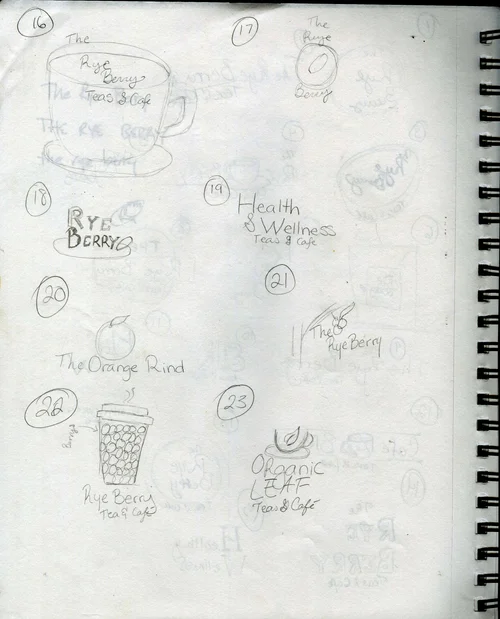 16
The
Rye
Berry
Teas & Café
17
The
Rye
Berry
18
RYE
BERRY
19
Health
& Wellness
Teas & Café
20
The Orange Rind
21
The
Rye Berry
22
Rye Berry
Tea & Café
23
ORGANIC
LEAF
Teas & Café